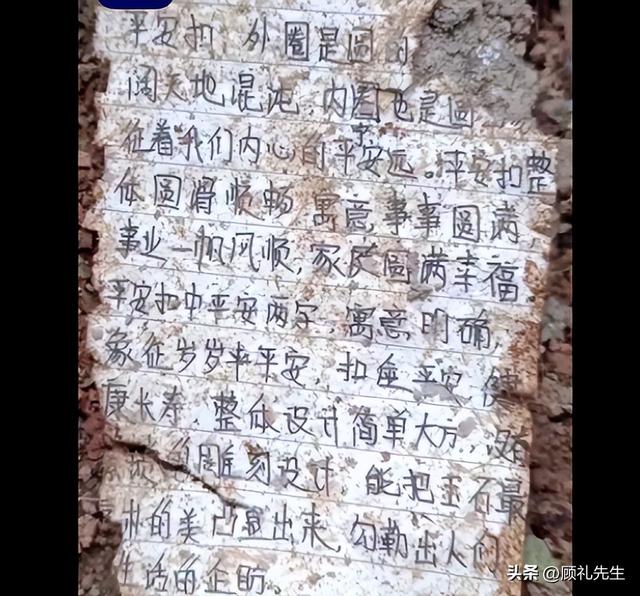 平安扣，外圈是圆的
阔天地混沌，内圈也是圆
征着我们内心的平安宁远。平安扣整
体圆滑顺畅，寓意事事圆满，
事业一帆风顺，家庭圆满幸福。
平安扣中平安两字，寓意明确，
象征岁岁平平安，扣座平安，健
康长寿，整体设计简单大方，没
雕刻设计，能把玉石最
的美凸显出来，勾勒出人们
生活的企盼。
头条 @顾礼先生